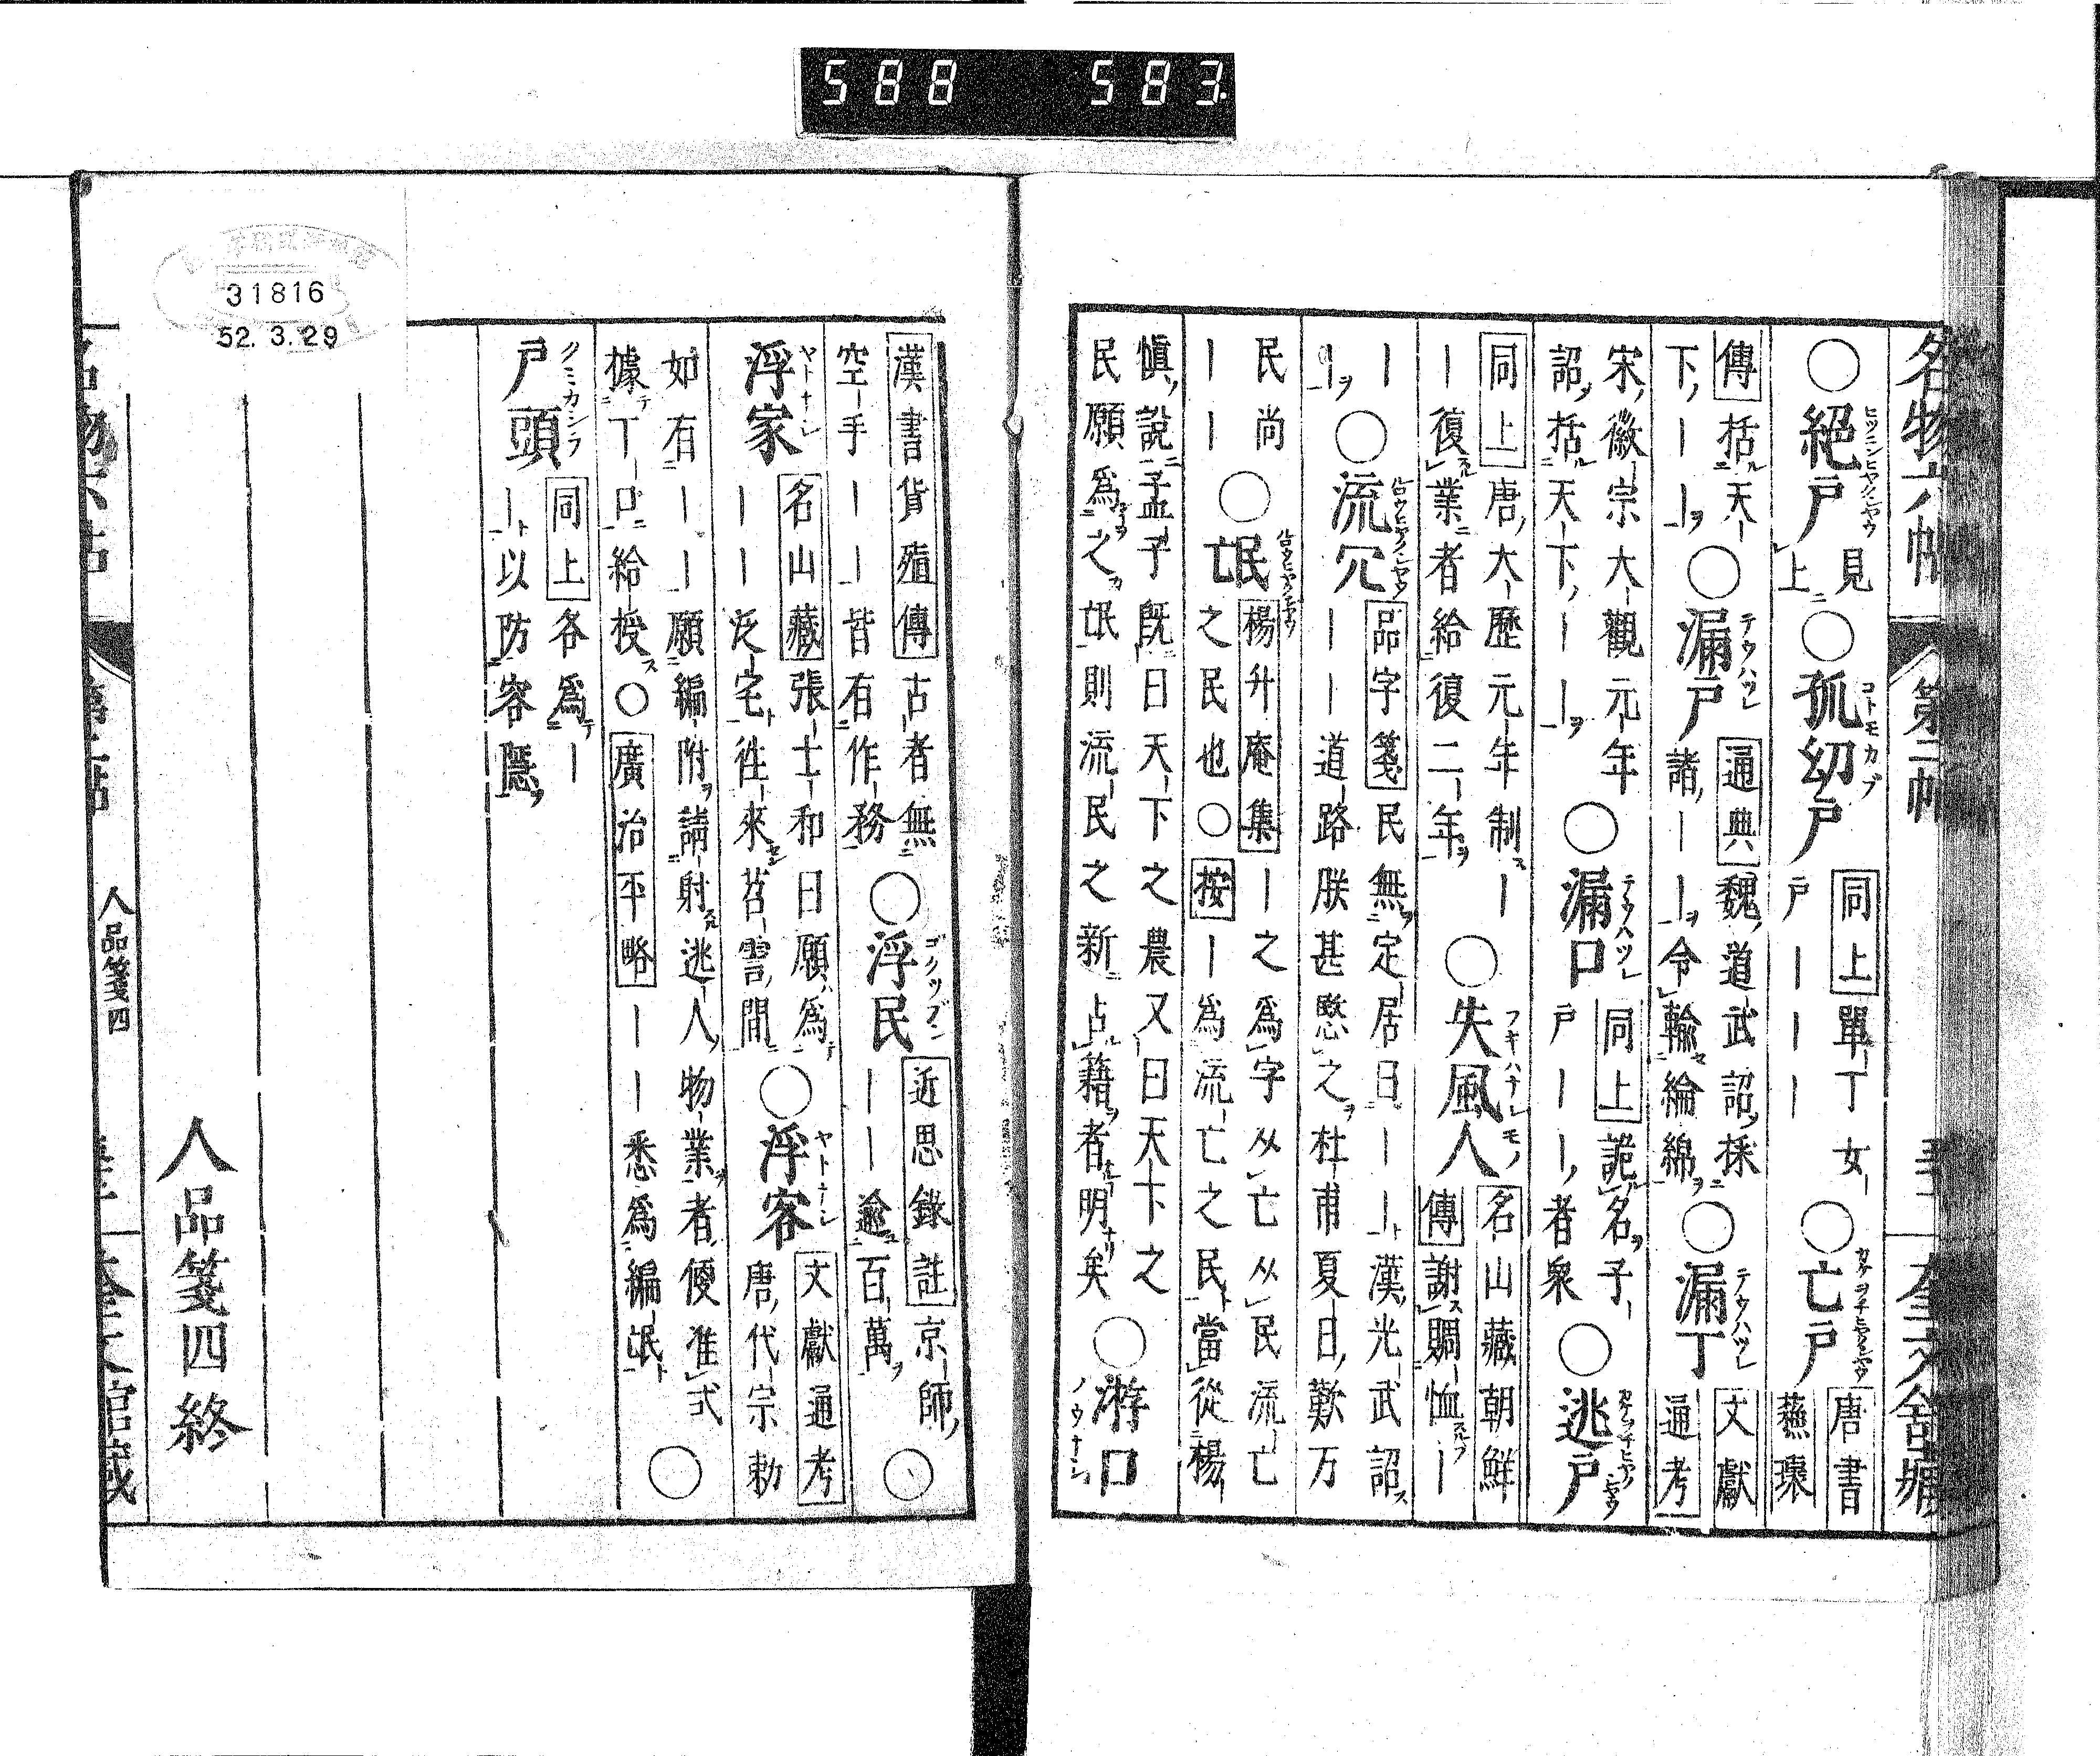 588 583
名物六帖 第二帖
○絕戶 見上 ○孤幼戶 同上 單丁女戶｜｜｜ ○亡戶 唐書蘇瓌
傳 括天下｜｜ ○漏戶 通典 魏道武詔採諸｜｜令輸綸綿 ○漏丁 文獻通考
宋徽宗大觀元年詔括天下｜｜ ○漏口 同上 詭名子戶｜｜者衆 ○逃戶
同上 唐大歷元年制｜｜復業者給復二年 ○失風人 名山藏朝鮮傳 謝賜恤｜
｜｜ ○流冗 品字箋 民無定居曰｜｜漢光武詔｜｜道路朕甚愍之杜甫夏日歎万
民尚｜｜ ○亡民 楊升庵集 ｜之為字从亡从民流亡之民也○按｜為流亡之民當從楊
愼說孟子既曰天下之農又曰天下之民願為之氓則流民之新占籍者明矣 ○游口
漢書貨殖傳 古者無空手｜｜皆有作務 ○浮民 近思錄註 京師｜｜逾百萬 ○
浮家 名山藏 張士和曰願為｜｜泛宅往來苕霅間 ○浮客 文獻通考 唐代宗勅
如有｜｜願編附請射逃人物業者便准式據丁口給授○廣治平略｜｜悉為編氓 ○
戶頭 同上 各為｜｜以防容隱
人品箋四終
人品箋四
31816
52. 3. 29